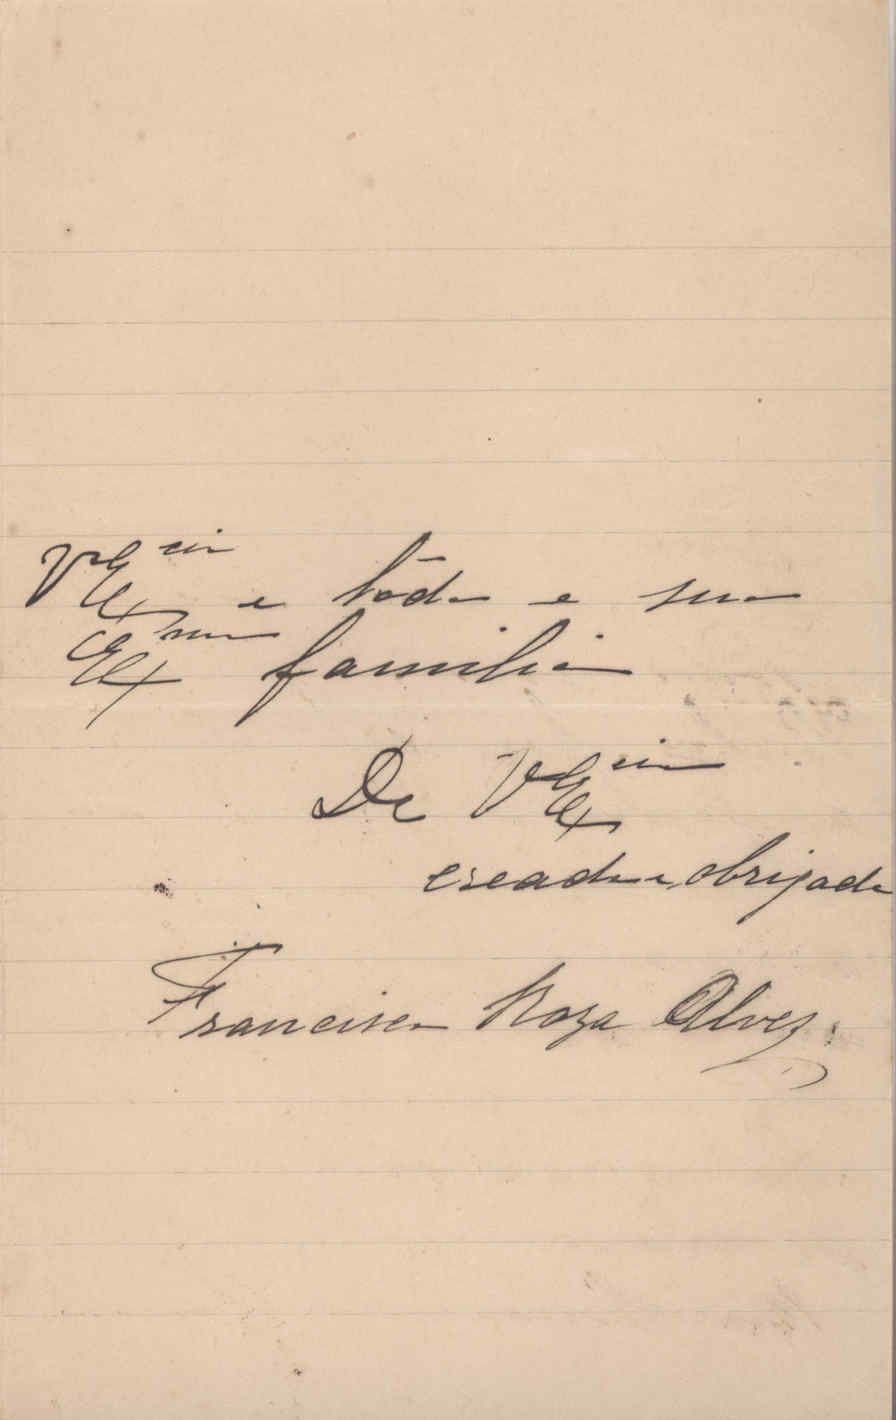 V Ex cia e tôda a sua
Ex ma familia
De V Ex cia
creada e obrigada
Francisca Roza Alvez